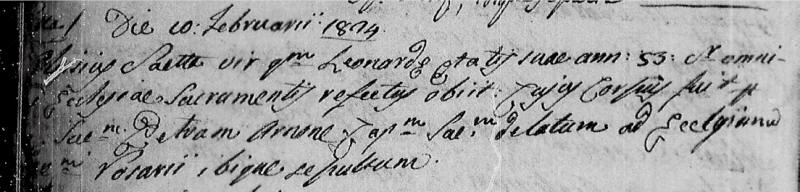 Die 10: Februarii 1824
Saetta vir qm Leonardi etatis suae ann: 53: Sr. omni-
Ecclesiae Sacramentis refectus obiit: Cujus Corpus fuit p
Petram Arnone Cap.m delatum ad Ecclesiam
Rosarii, ibique sepultum.